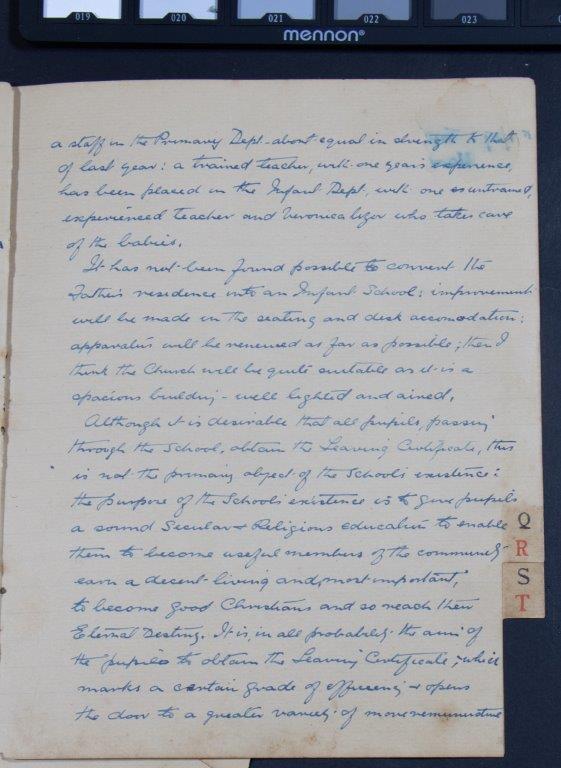 019 020 021 022 023
mennon®
a staff in the Primary Dept. about equal in strength to that
of last year: a trained teacher, with one year's experience,
has been placed in the Infant Dept, with one untrained,
experienced teacher and Veronica who takes care
of the babies.
It has not been found possible to convert the
Father's residence into an Infant School: improvement
will be made in the seating and desk accomodation:
apparatus will be renewed as far as possible; then I
think the Church will be quite suitable as it is a
spacious building - well lighted and aired.
Although it is desirable that all pupils, passing
through the School, obtain the Leaving Certificate, this
is not the primary object of the School's existence:
the purpose of the School's existence is to give pupils
a sound Secular & Religious education to enable
them to become useful members of the community -
earn a decent living and, most important,
to become good Christians and so reach their
Eternal Destiny. It is, in all probability the aim of
the pupils to obtain the Leaving Certificate, which
marks a certain grade of efficiency & opens
the door to a greater variety of more remunerative
Q
R
S
T